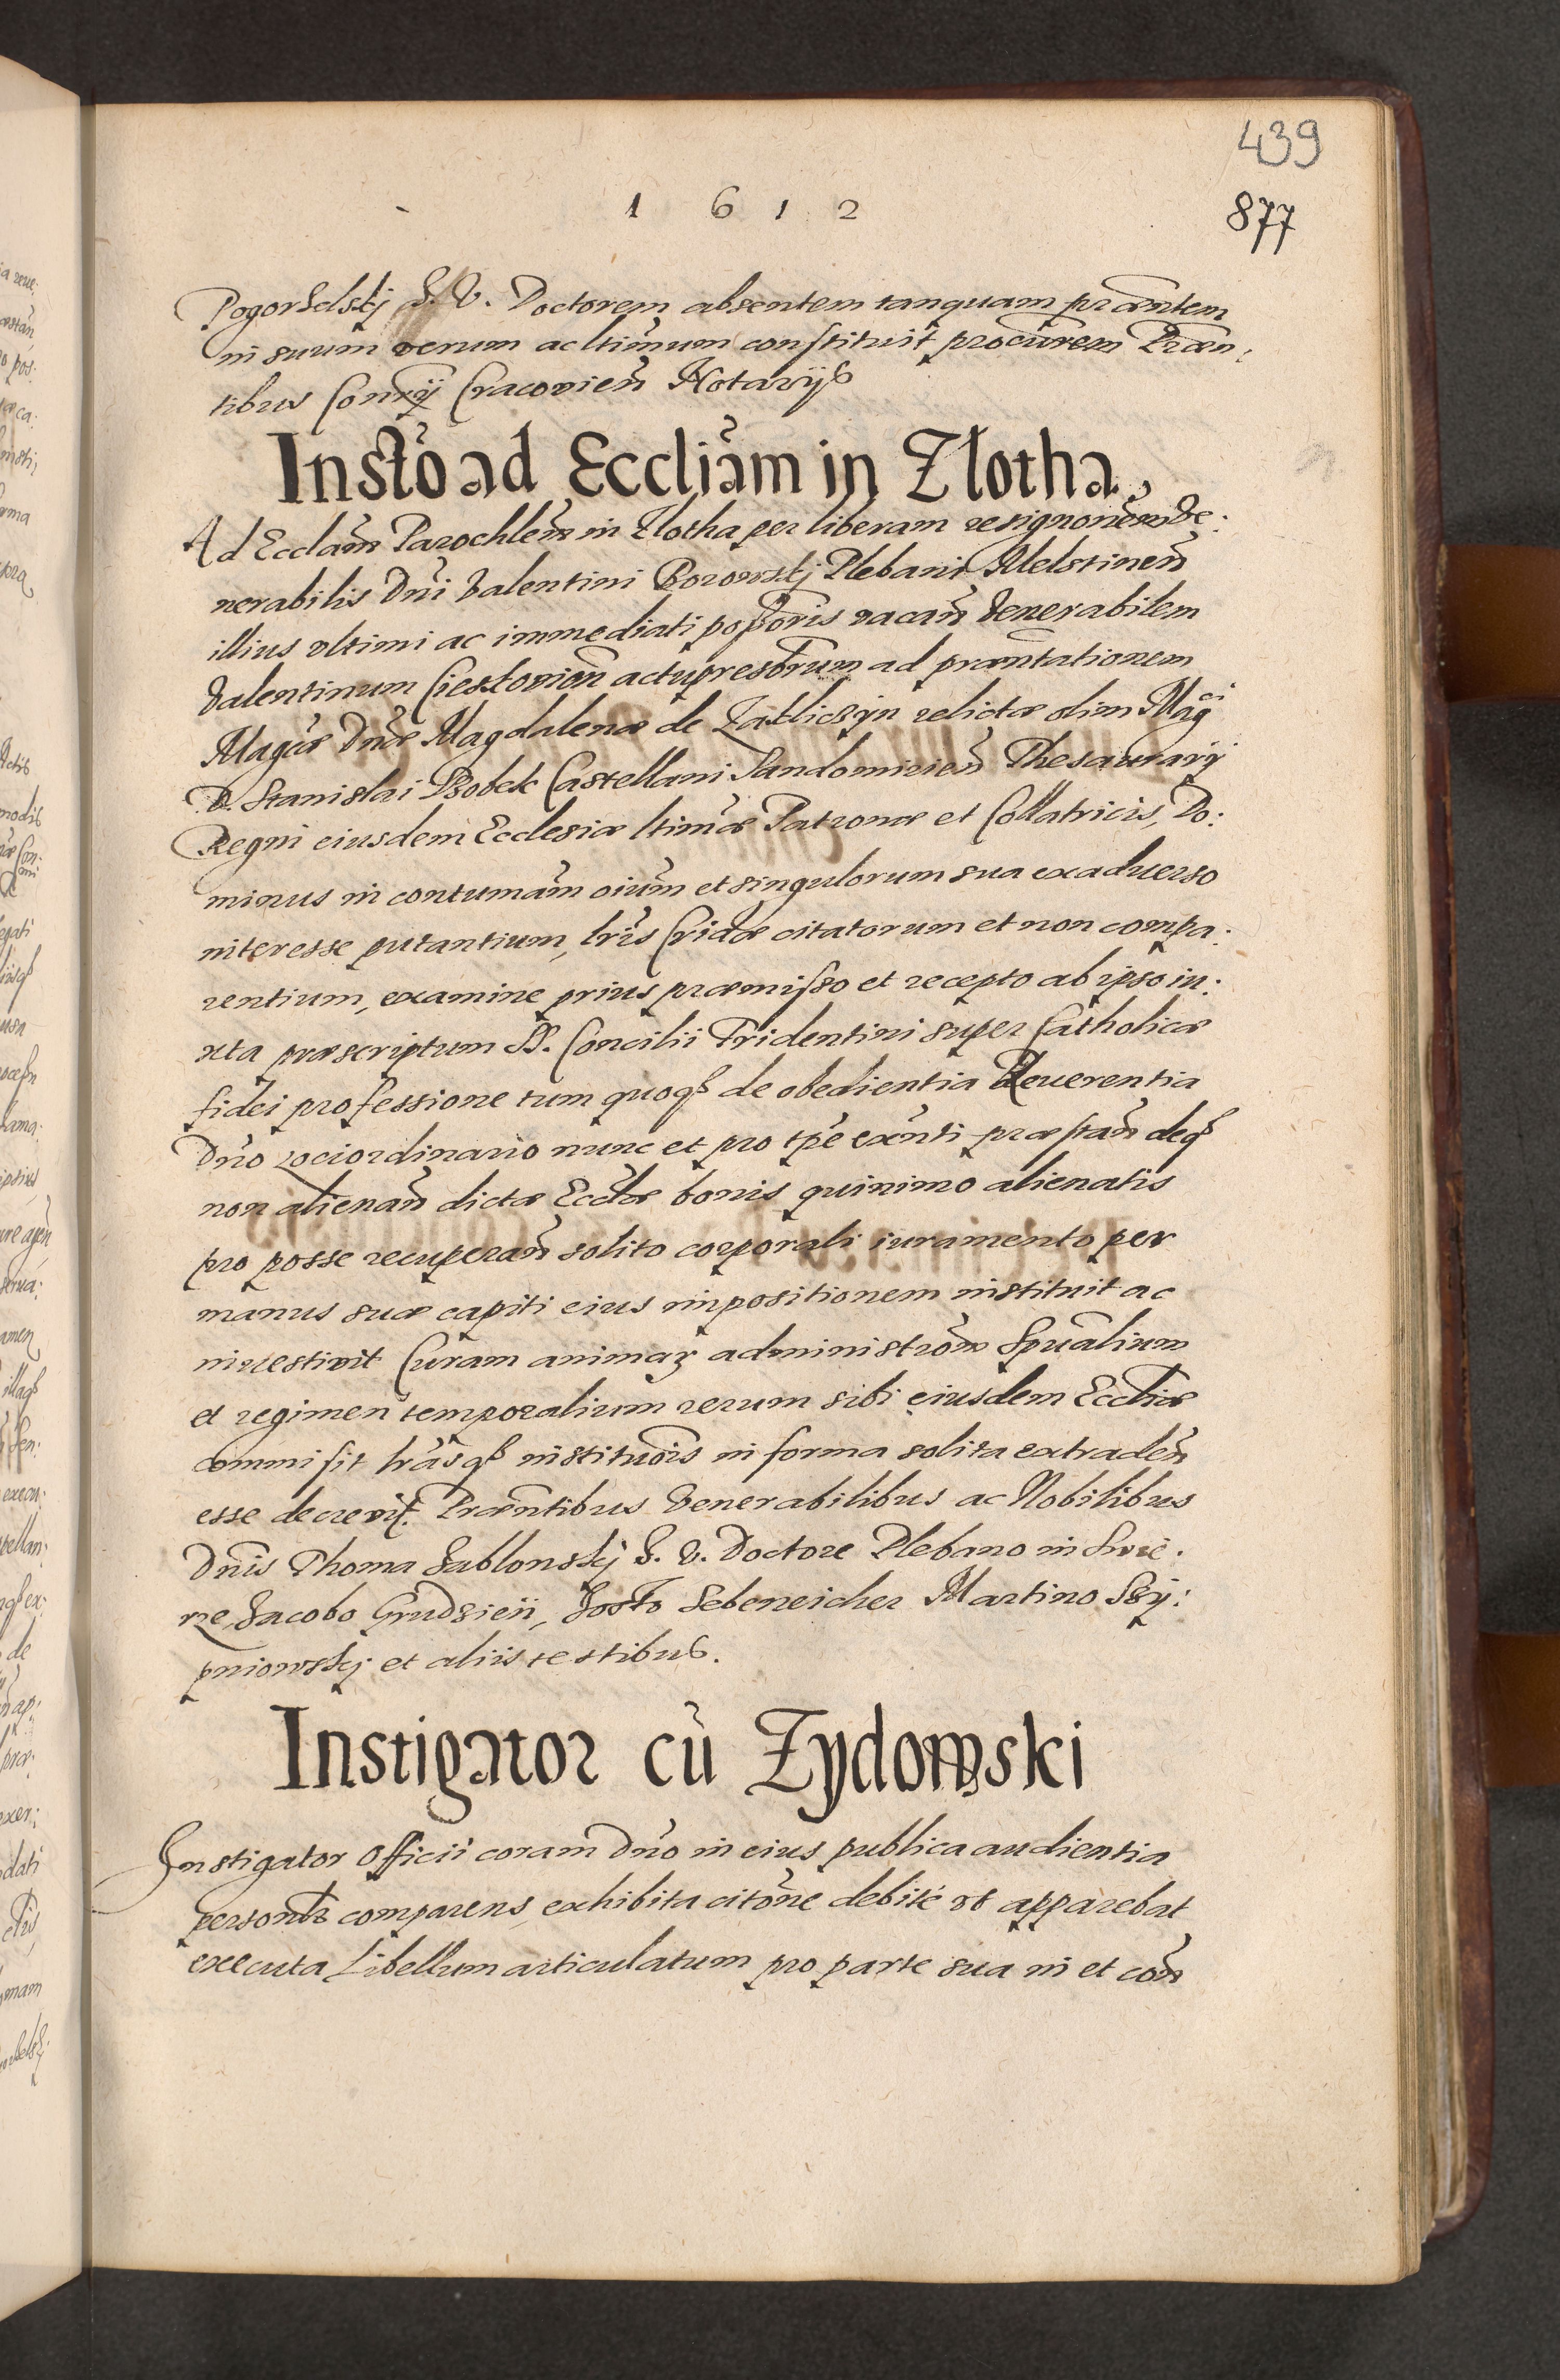 439
1 6 1 2
877
Pogorselskj J. V. Doctorem absentem tanquam præntem
in suum verum ac ltimum constituit procurem Præn:
tibus Consrÿ Cracovien Notarÿs
Instō ad Eccliam in Zlotha
Ad Ecclam Parochlem in Zlotha per liberam resignonem Ve:
nerabilis Dni Valentini Borowskj Plebani Melstinen
illius vltimi ac immediati possoris vacan Venerabilem
Valentinum actu presbrum ad præntationem
Magcæ Dnæ Magdalenæ de Zakliczyn relictæ olim Magci
D. Stanislai Sobek Castellani Sandomirien Thesaurarÿ
Regni eiusdem Ecclesiæ ltimæ Patronæ et Collatricis, Do:
minus in contumam oium et singulorum sua ex aduerso
interesse putantium, lris Cridæ citatorum et non compa:
rentium, examine prius præmisso et recepto ab ipso iu:
xta præscriptum SS. Concilii Tridentini super Catholicæ
fidei professione tum quoq de obedientia Reuerentia
Dno loci ordinario nunc et pro tpe exnti præstan deq
non alienan dictæ Ecclæ bonis quinimo alienatis
pro posse recuperan solito corporali iuramento per
manus suæ capiti eius impositionem instituit ac
inuestivit Curam animarz administrom Spualium
et regimen temporalium rerum sibi eiusdem Eccliæ
commisit lrasq institutois in forma solita extraden
esse decrevit. Præntibus Venerabilibus ac Nobilibus
Dnis Thoma Jablonskj J. V. Doctore Plebano in Swie:
rze, Jacobo Grudzieii, Josto Sebeneicher Martino Szy:
pniowskj et aliis testibus.
Instigator cū Zydowski
Instigator Officii coram Dno in eius publica audientia
personlr comparens, exhibita citone debité vt apparebat
executa Libellum articulatum pro parte sua in et con